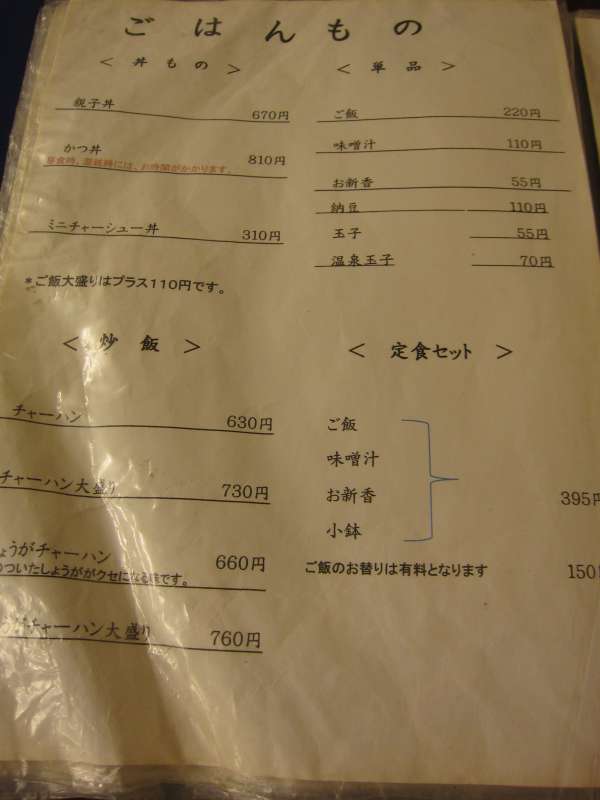 ごはんもの
＜ 丼もの ＞
親子丼 670円
かつ丼 810円
昼食時、混雑時には、お時間がかかります。
ミニチャーシュー丼 310円
*ご飯大盛りはプラス110円です。
＜ 単品 ＞
ご飯 220円
味噌汁 110円
お新香 55円
納豆 110円
玉子 55円
温泉玉子 70円
＜ 炒飯 ＞
チャーハン 630円
チャーハン大盛り 730円
ょうがチャーハン 660円
のついたしょうががクセになる味です。
チャーハン大盛り 760円
＜ 定食セット ＞
ご飯
味噌汁
お新香
小鉢
395円
ご飯のお替りは有料となります 150